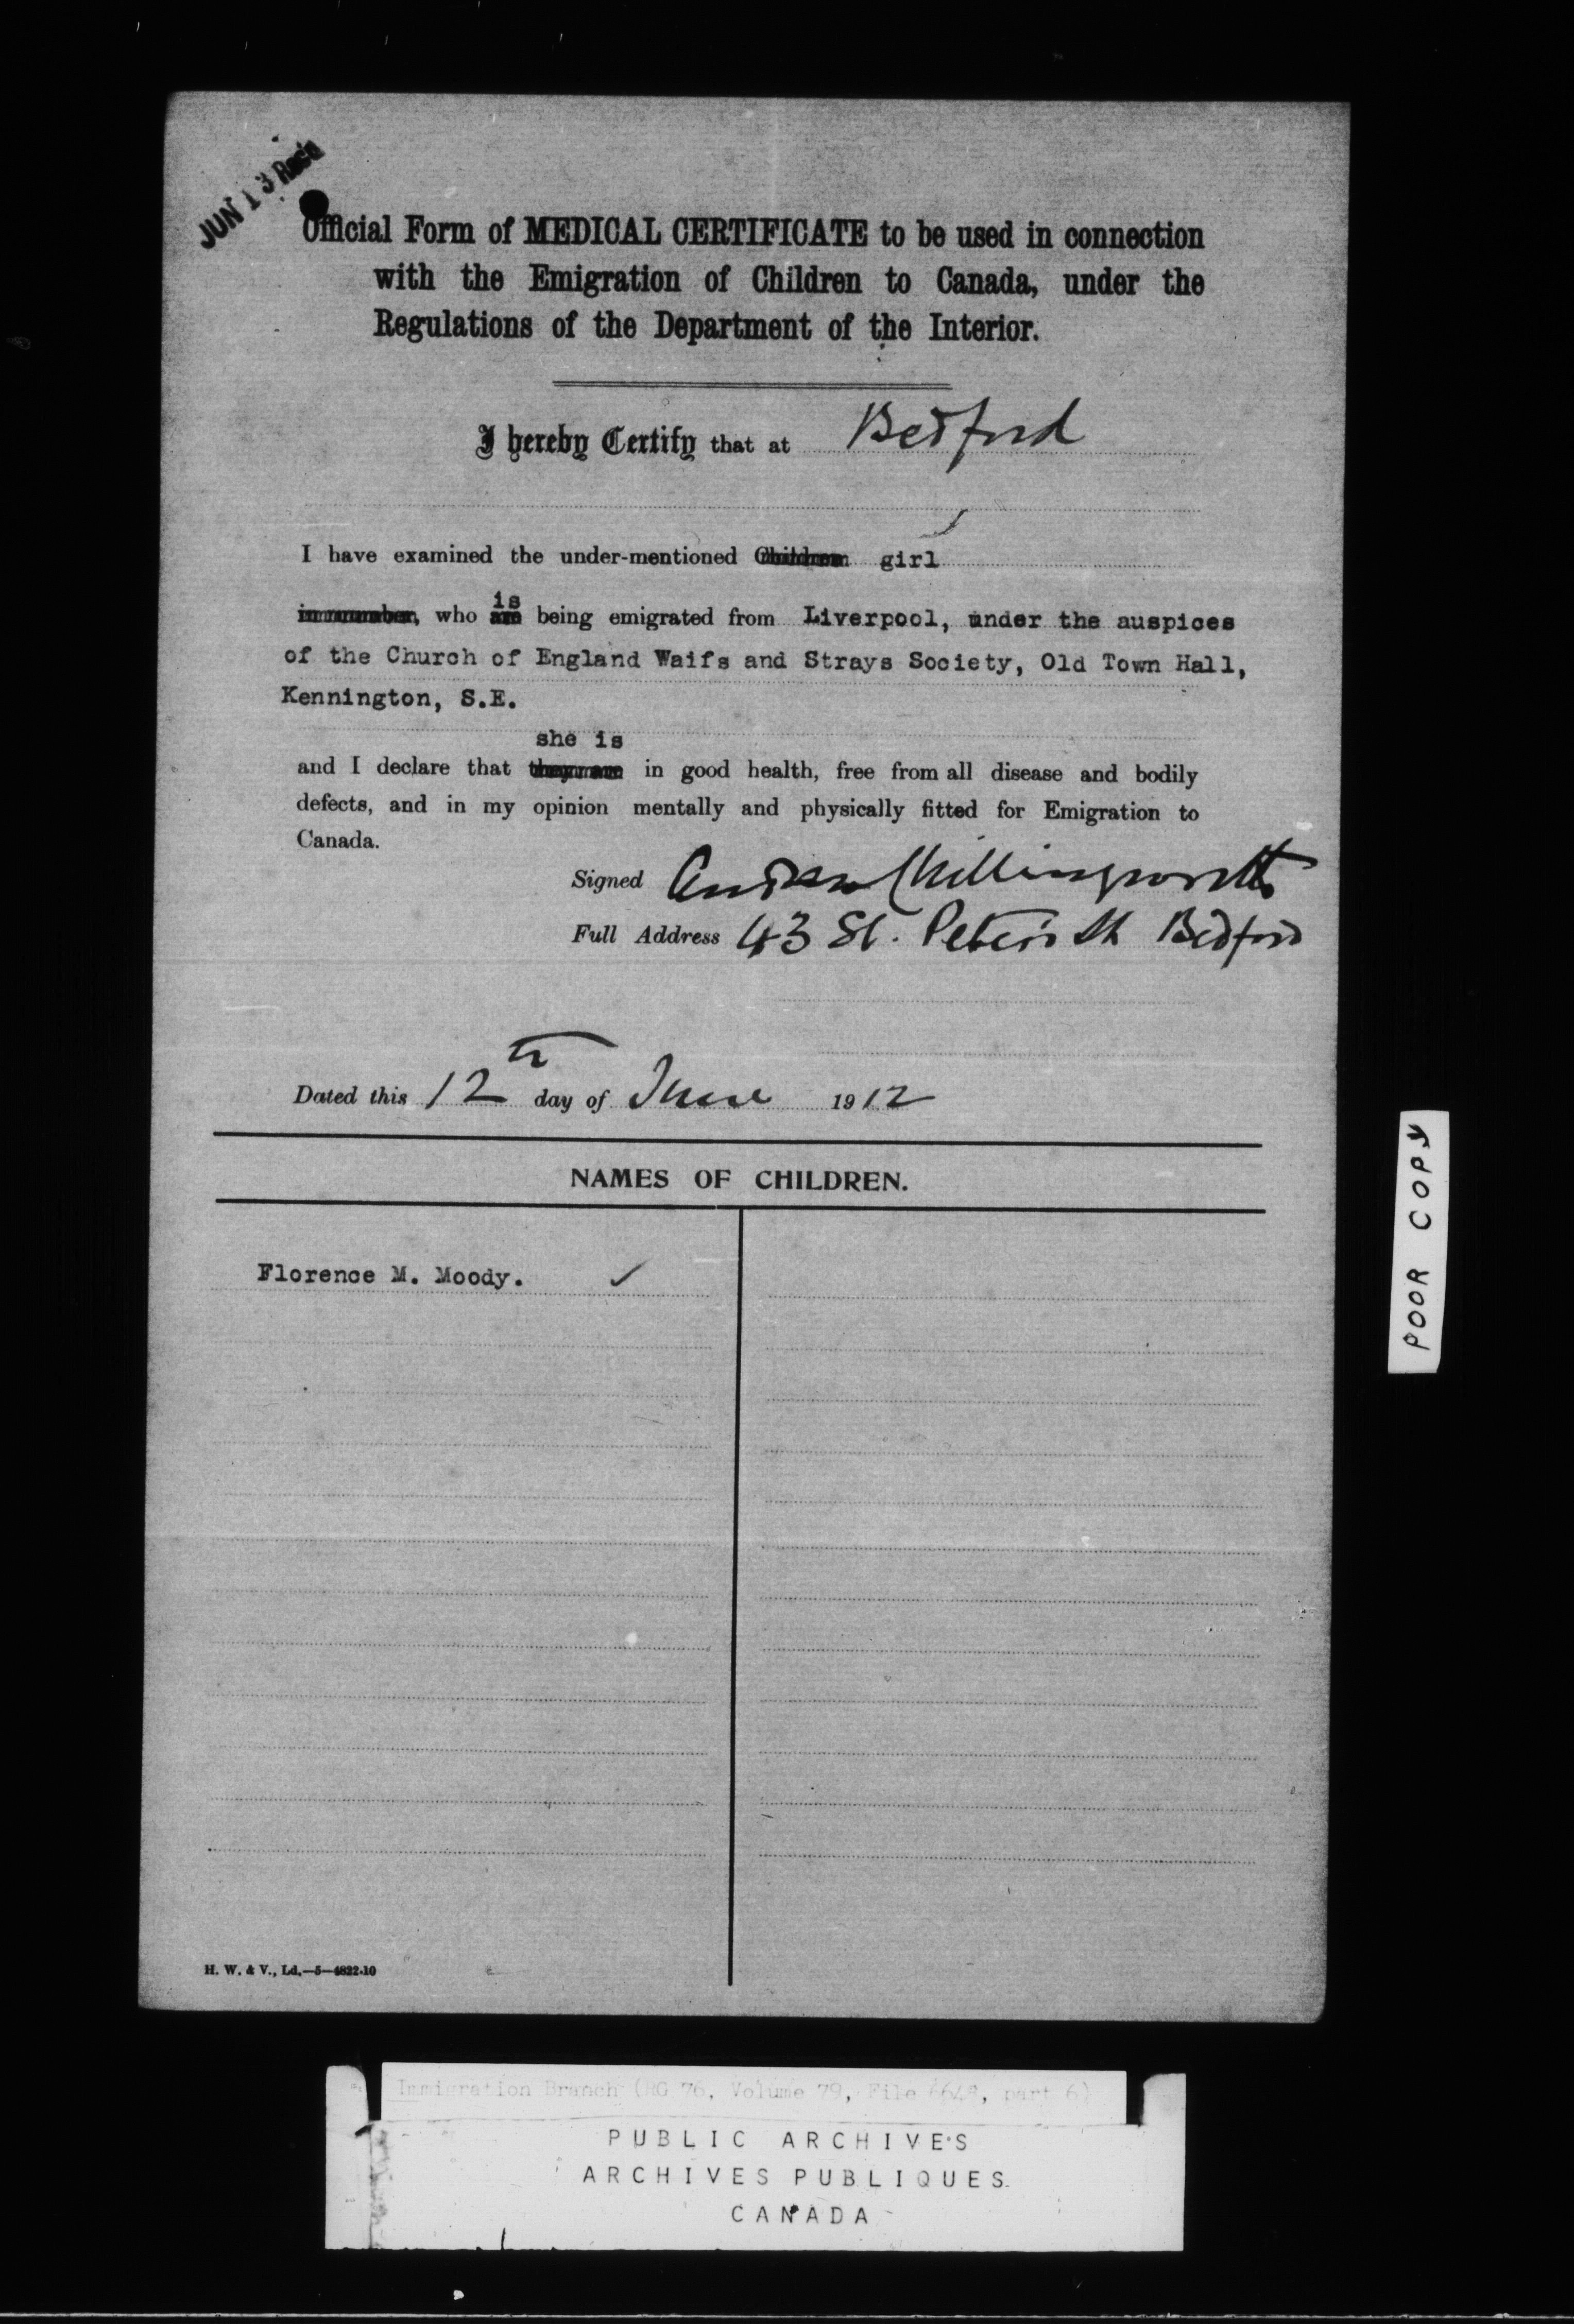 JUN 13 Recd
Official Form of MEDICAL CERTIFICATE to be used in connection
with the Emigration of Children to Canada, under the
Regulations of the Department of the Interior.
I hereby Certify that at Bedford
I have examined the under-mentioned Children girl
is
in number, who are being emigrated from Liverpool, under the auspices
of the Church of England Waifs and Strays Society, Old Town Hall,
Kennington, S.E.
she is
and I declare that they are in good health, free from all disease and bodily
defects, and in my opinion mentally and physically fitted for Emigration to
Canada.
Signed Chillingworth
Full Address 43 St. Peter's St Bedford
Dated this 12th day of June 1912
NAMES OF CHILDREN.
Florence M. Moody. ✓
H. W. & V., Ld.—5—4822-10
POOR COPY
Immigration Branch (RG 76, Volume 79, File part 6)
PUBLIC ARCHIVES
ARCHIVES PUBLIQUES
CANADA